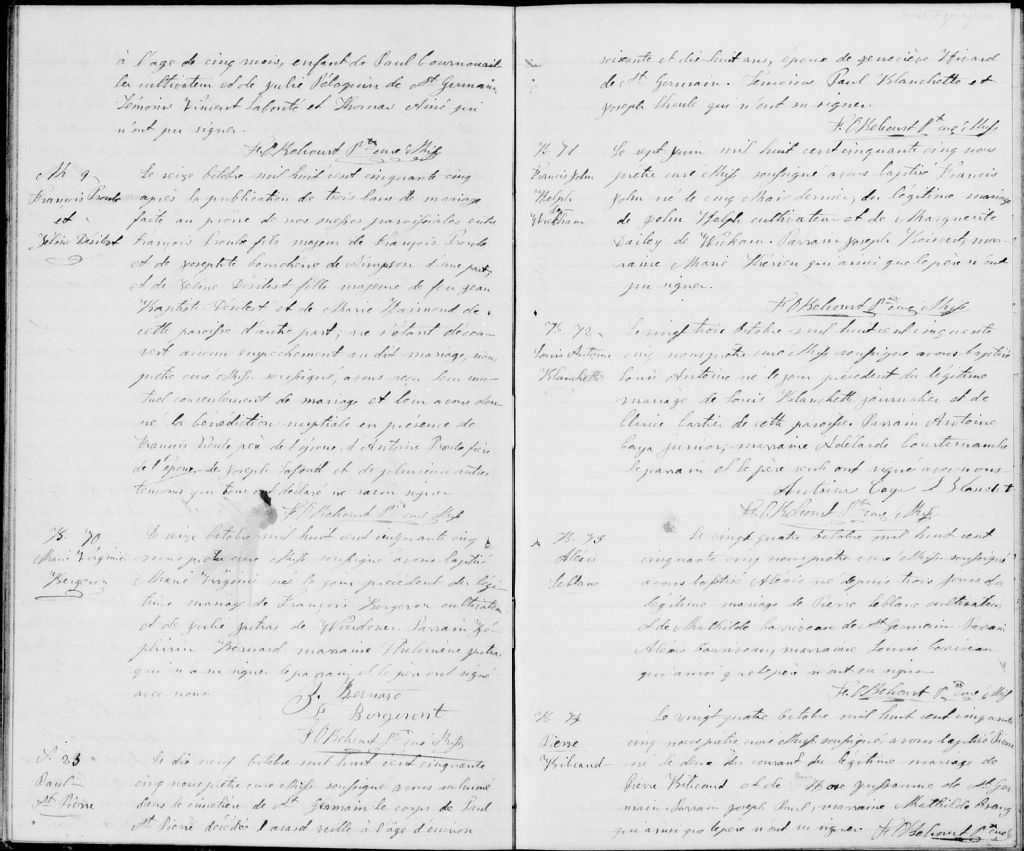 à l'age de cinq mois, enfant de Paul
cultivateur et de Julie Pélaquin de St Germain
Vincent Laborité et Thomas qui
n'ont pu signer.
Ptre curé Miss
M. 9
François Proulx
et
Zeline Désilest
Le seize octobre mil huit cent cinquante cinq
après la publication de trois bans de mariage
faite au prône de nos messes paroissiales entre
François Proulx fils majeur de François Proulx
et de Josephte de Simpson d'une part,
et de Zeline Désilest fille majeure de feu Jean
Baptiste Désilest et de Marie de
cette paroisse d'autre part; ne s'étant décou-
vert aucun empechement au dit mariage, nous
prêtre curé Miss. soussigné, avons reçu leur mu-
tuel consentement de mariage et leur avons don-
né la bénédiction nuptiale en presence de
François Proulx père de l'époux, d'Antoine Proulx frère
de l'époux de Joseph Lafond et de plusieurs autres
temoins qui tous ont déclaré ne savoir signer.
Ptre curé Miss
B. 70
Marie Virginie
Bergeron
Le seize octobre mil huit cent cinquante cinq
nous prêtre curé Miss soussigné avons baptisé
Marie Virginie née le jour précédent du légi-
time mariage de François Bergeron cultivateur
et de Julie Jutras de Wendover. Parrain Zé-
phirin Bernard marraine Philomène Jutras
qui n'a su signer le parrain, et le père ont signé
avec nous
Z. Bernard
F. Bergeront
Ptre curé Miss
S. 23
Paul
St Pierre
Le dix neuf octobre mil huit cent cinquante
cinq nous prêtre curé Miss soussigné avons inhumé
dans le cimetière de St Germain le corps de Paul
St Pierre décédé l'avant veille à l'âge d'environ
soixante et dix huit ans, époux de Geneviève
de St Germain. Témoins Paul Blanchette et
Joseph qui n'ont su signer.
Ptre curé Miss
B. 71
Francis John
Le sept Juin mil huit cent cinquante cinq nous
prêtre curé Miss. soussigné avons baptisé Francis
John né le cinq Mai dernier, du légitime mariage
de John cultivateur et de Marguerite
Dailey de Wickham. Parrain Joseph Boisvert, mar-
raine Marie Thérien qui ainsi que le père n'ont
pu signer.
Ptre curé Miss
B. 72
Louis Antoine
Blanchette
Le vingt trois octobre mil huit cent cinquante
cinq nous prêtre curé Miss soussigné avons baptisé
Louis Antoine né le jour précédent du légitime
mariage de Louis Blanchette journalier et de
Clarice Cartier de cette paroisse. Parrain Antoine
Caya junior, marraine Adelaide Courtemanche
le parrain et le père seuls ont signé avec nous
Antoine Caya L Blanchet
Ptre curé Miss
B. 73
Alexis
Leblanc
Le vingt quatre octobre mil huit cent
cinquante cinq nous prêtre curé Miss. soussigné
avons baptisé Alexis né depuis trois jours du
légitime mariage de Pierre Leblanc cultivateur
et de Mathilde Corriveau de St Germain. Parrain
Alexis Corriveau, marraine Louise Corriveau
qui ainsi que le père n'ont su signer
Ptre curé Miss
B. 74
Pierre
Bibeaud
Le vingt quatre octobre mil huit cent cinquante
cinq nous prêtre curé Miss soussigné avons baptisé Pierre
né le deux du courant du légitime mariage de
Pierre Bibeaud et de de St Ger-
main. Parrain Joseph Paul, marraine Mathilde
qui ainsi que le père n'ont su signer. Ptre curé